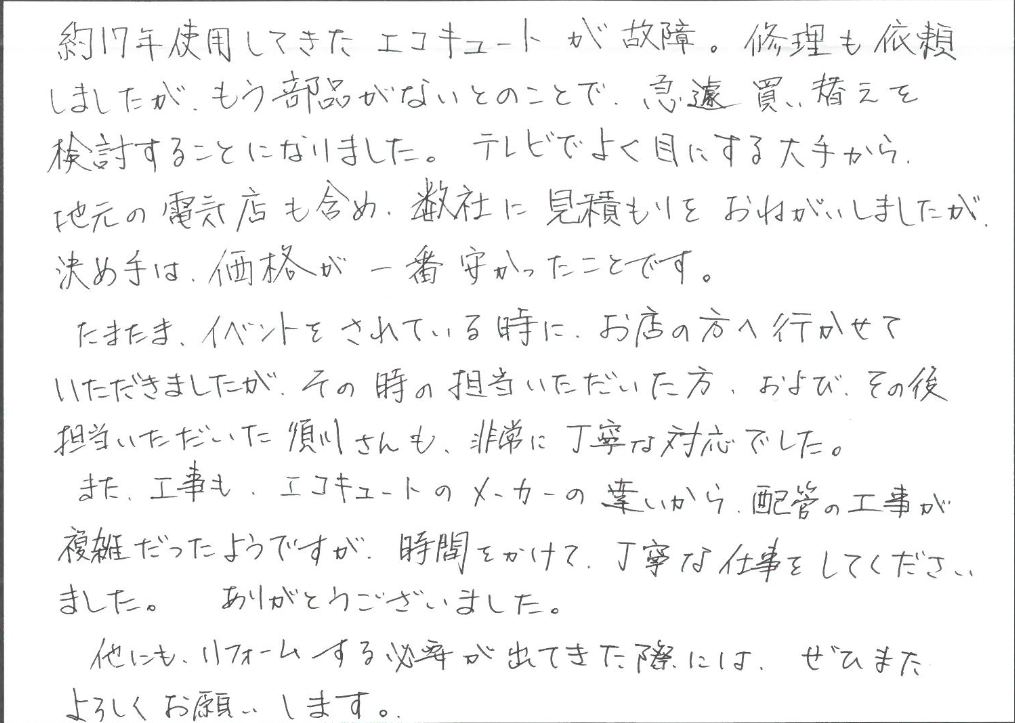 約17年使用してきたエコキュートが故障。修理も依頼
しましたが、もう部品がないとのことで、急遽買い替えを
検討することになりました。テレビでよく目にする大手から、
地元の電気店も含め、数社に見積もりをおねがいしましたが、
決め手は、価格が一番安かったことです。
たまたま、イベントをされている時に、お店の方へ行かせて
いただきましたが、その時の担当いただいた方、および、その後
担当いただいた須川さんも、非常に丁寧な対応でした。
また、工事も、エコキュートのメーカーの違いから、配管の工事が
複雑だったようですが、時間をかけて、丁寧な仕事をしてください
ました。 ありがとうございました。
他にも、リフォームする必要が出てきた際には、ぜひまた
よろしくお願いします。